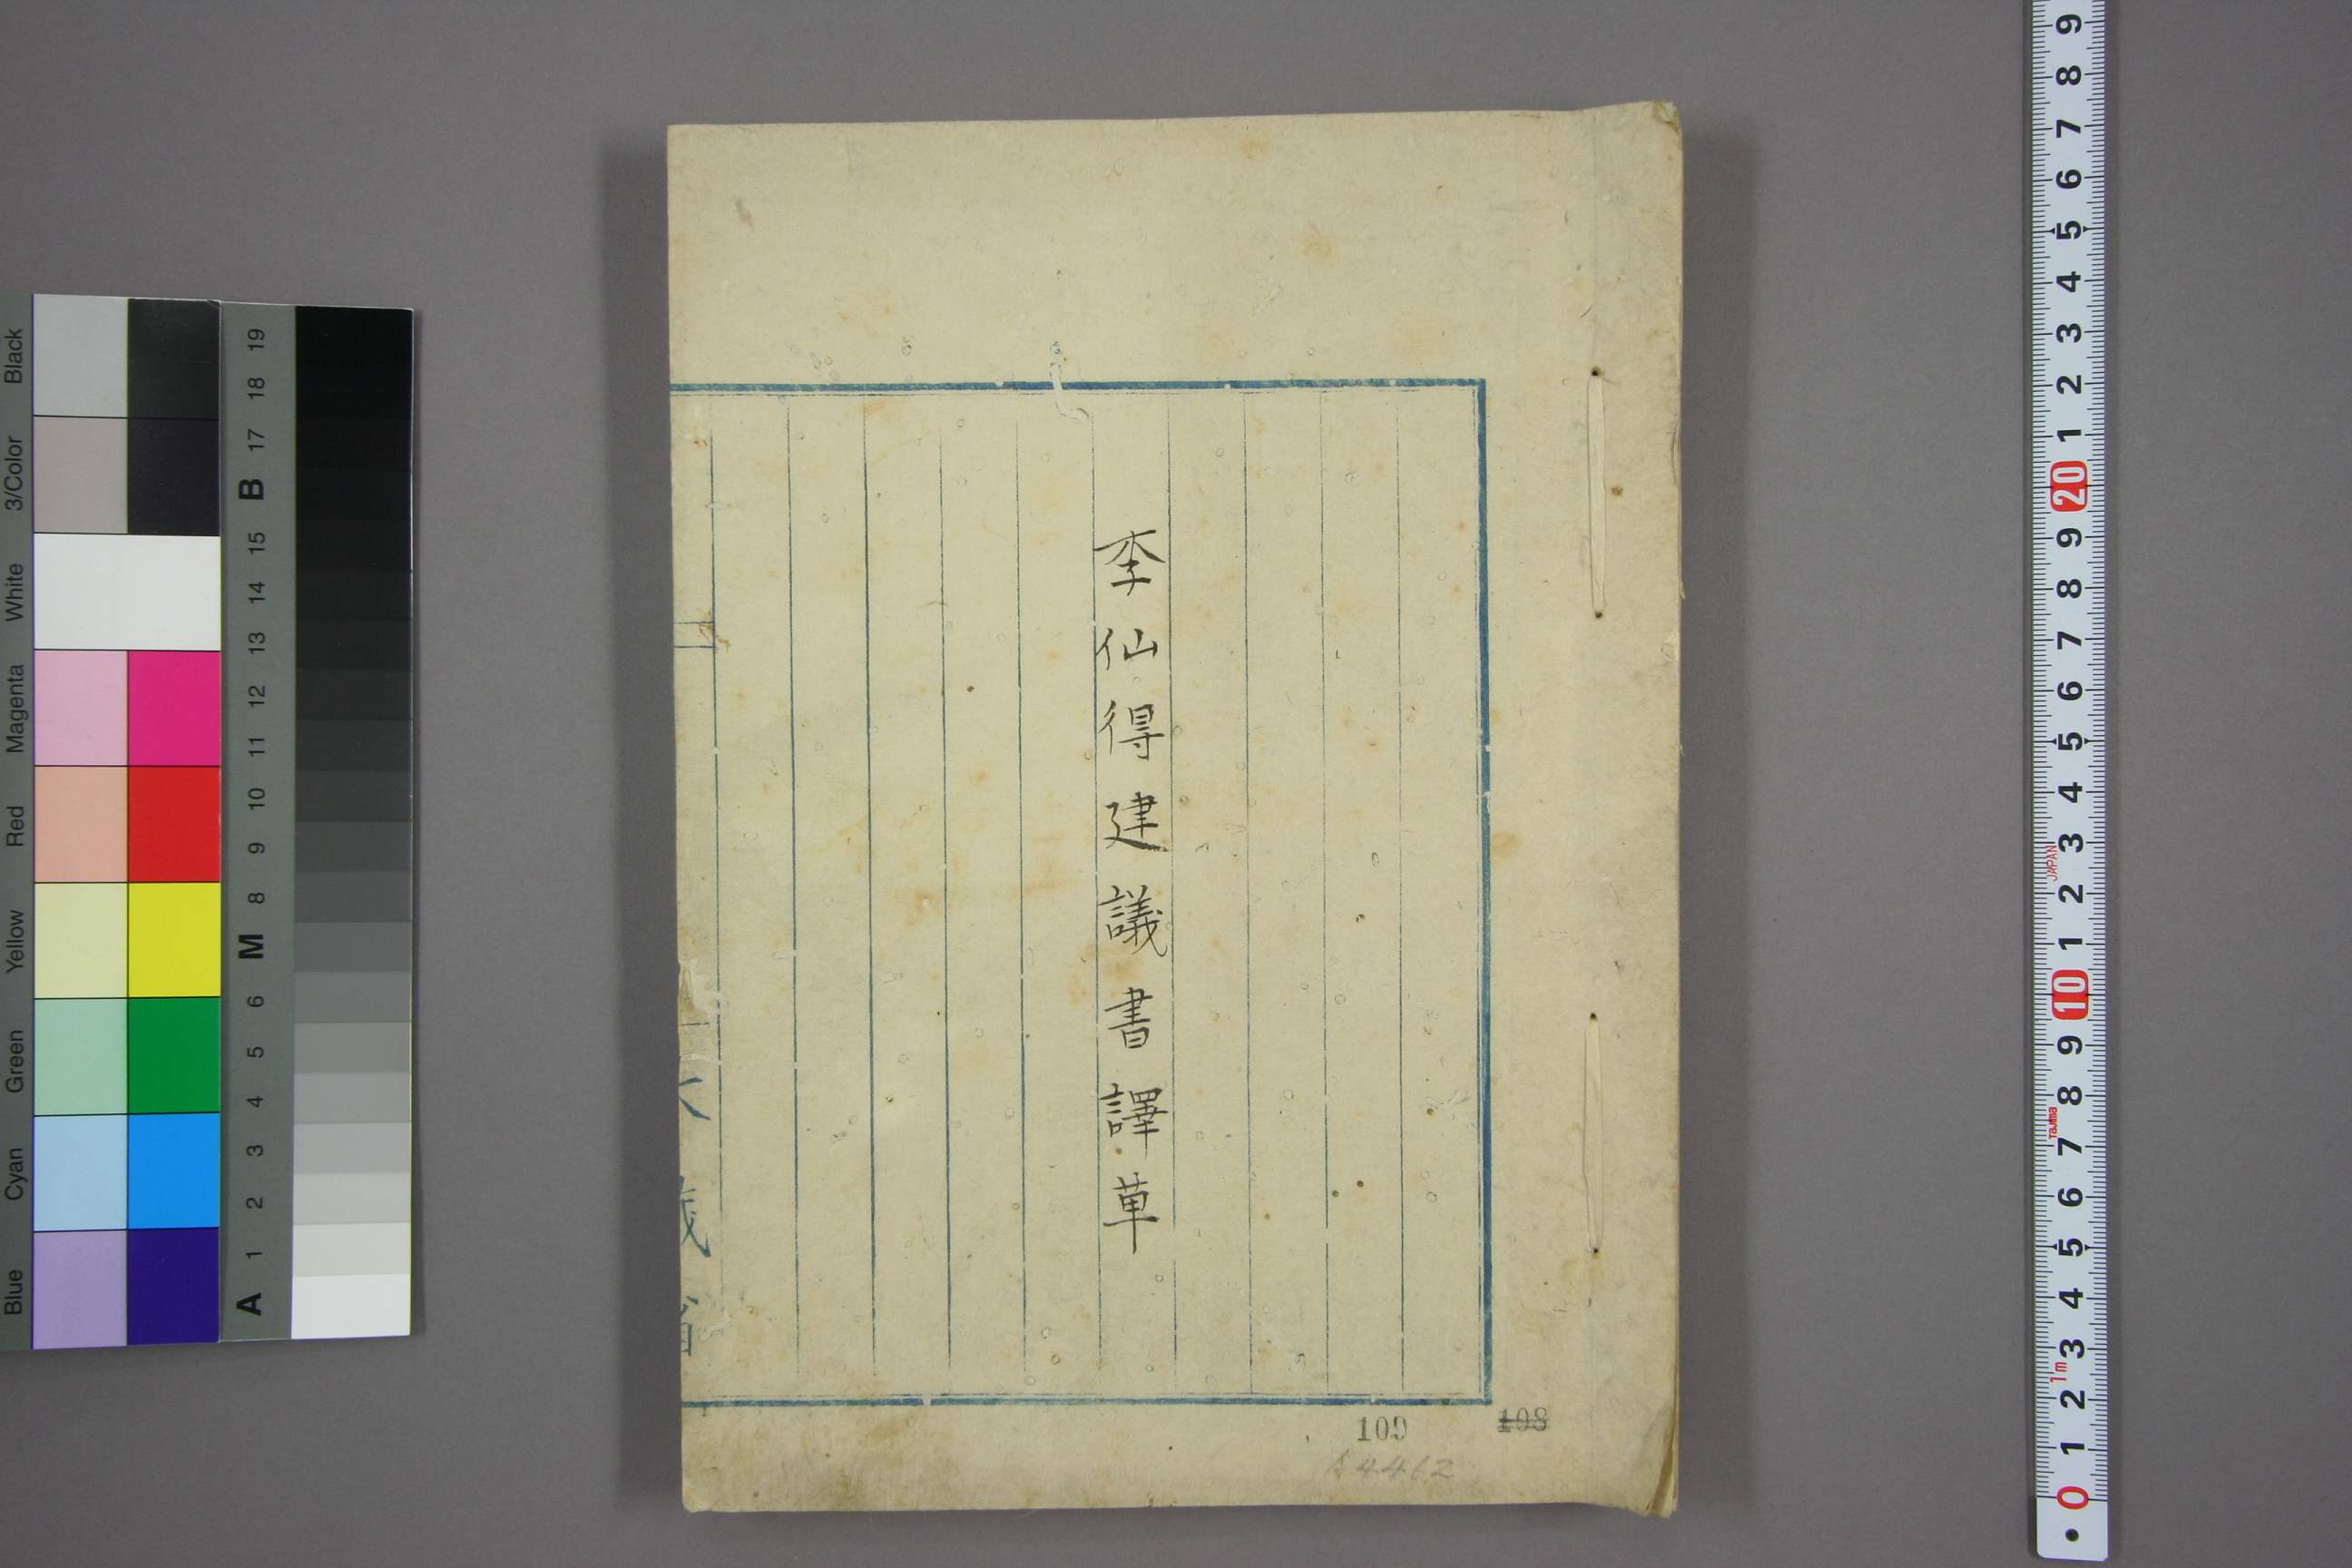 李仙得建議書譯草
109
108
A4462
Black
3/Color
White
Magenta
Red
Yellow
Green
Cyan
Blue
19
18
17
B
15
14
13
12
11
10
9
8
M
6
5
4
3
2
1
A
9
8
7
6
5
4
3
2
1
20
9
8
7
6
5
4
3
JAPAN
2
1
10
9
8
Tajima
7
6
5
4
3
1m
2
1
0